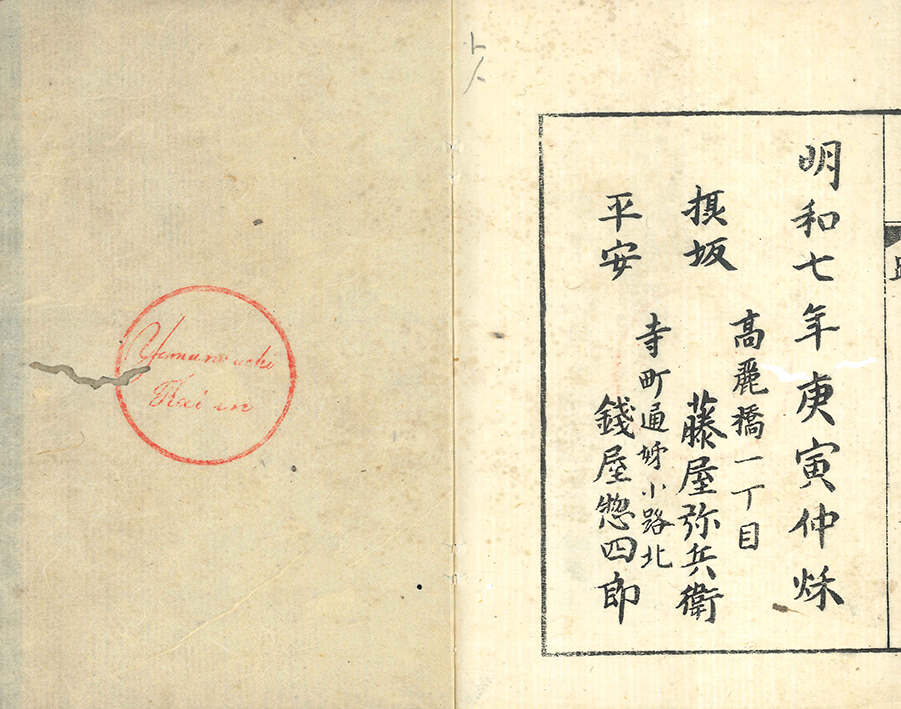 明和七年庚寅仲秌
高麗橋一丁目
摂坂
藤屋弥兵衛
寺町通姉小路北
平安
錢屋惣四郎
Yamanouchi
Kai in